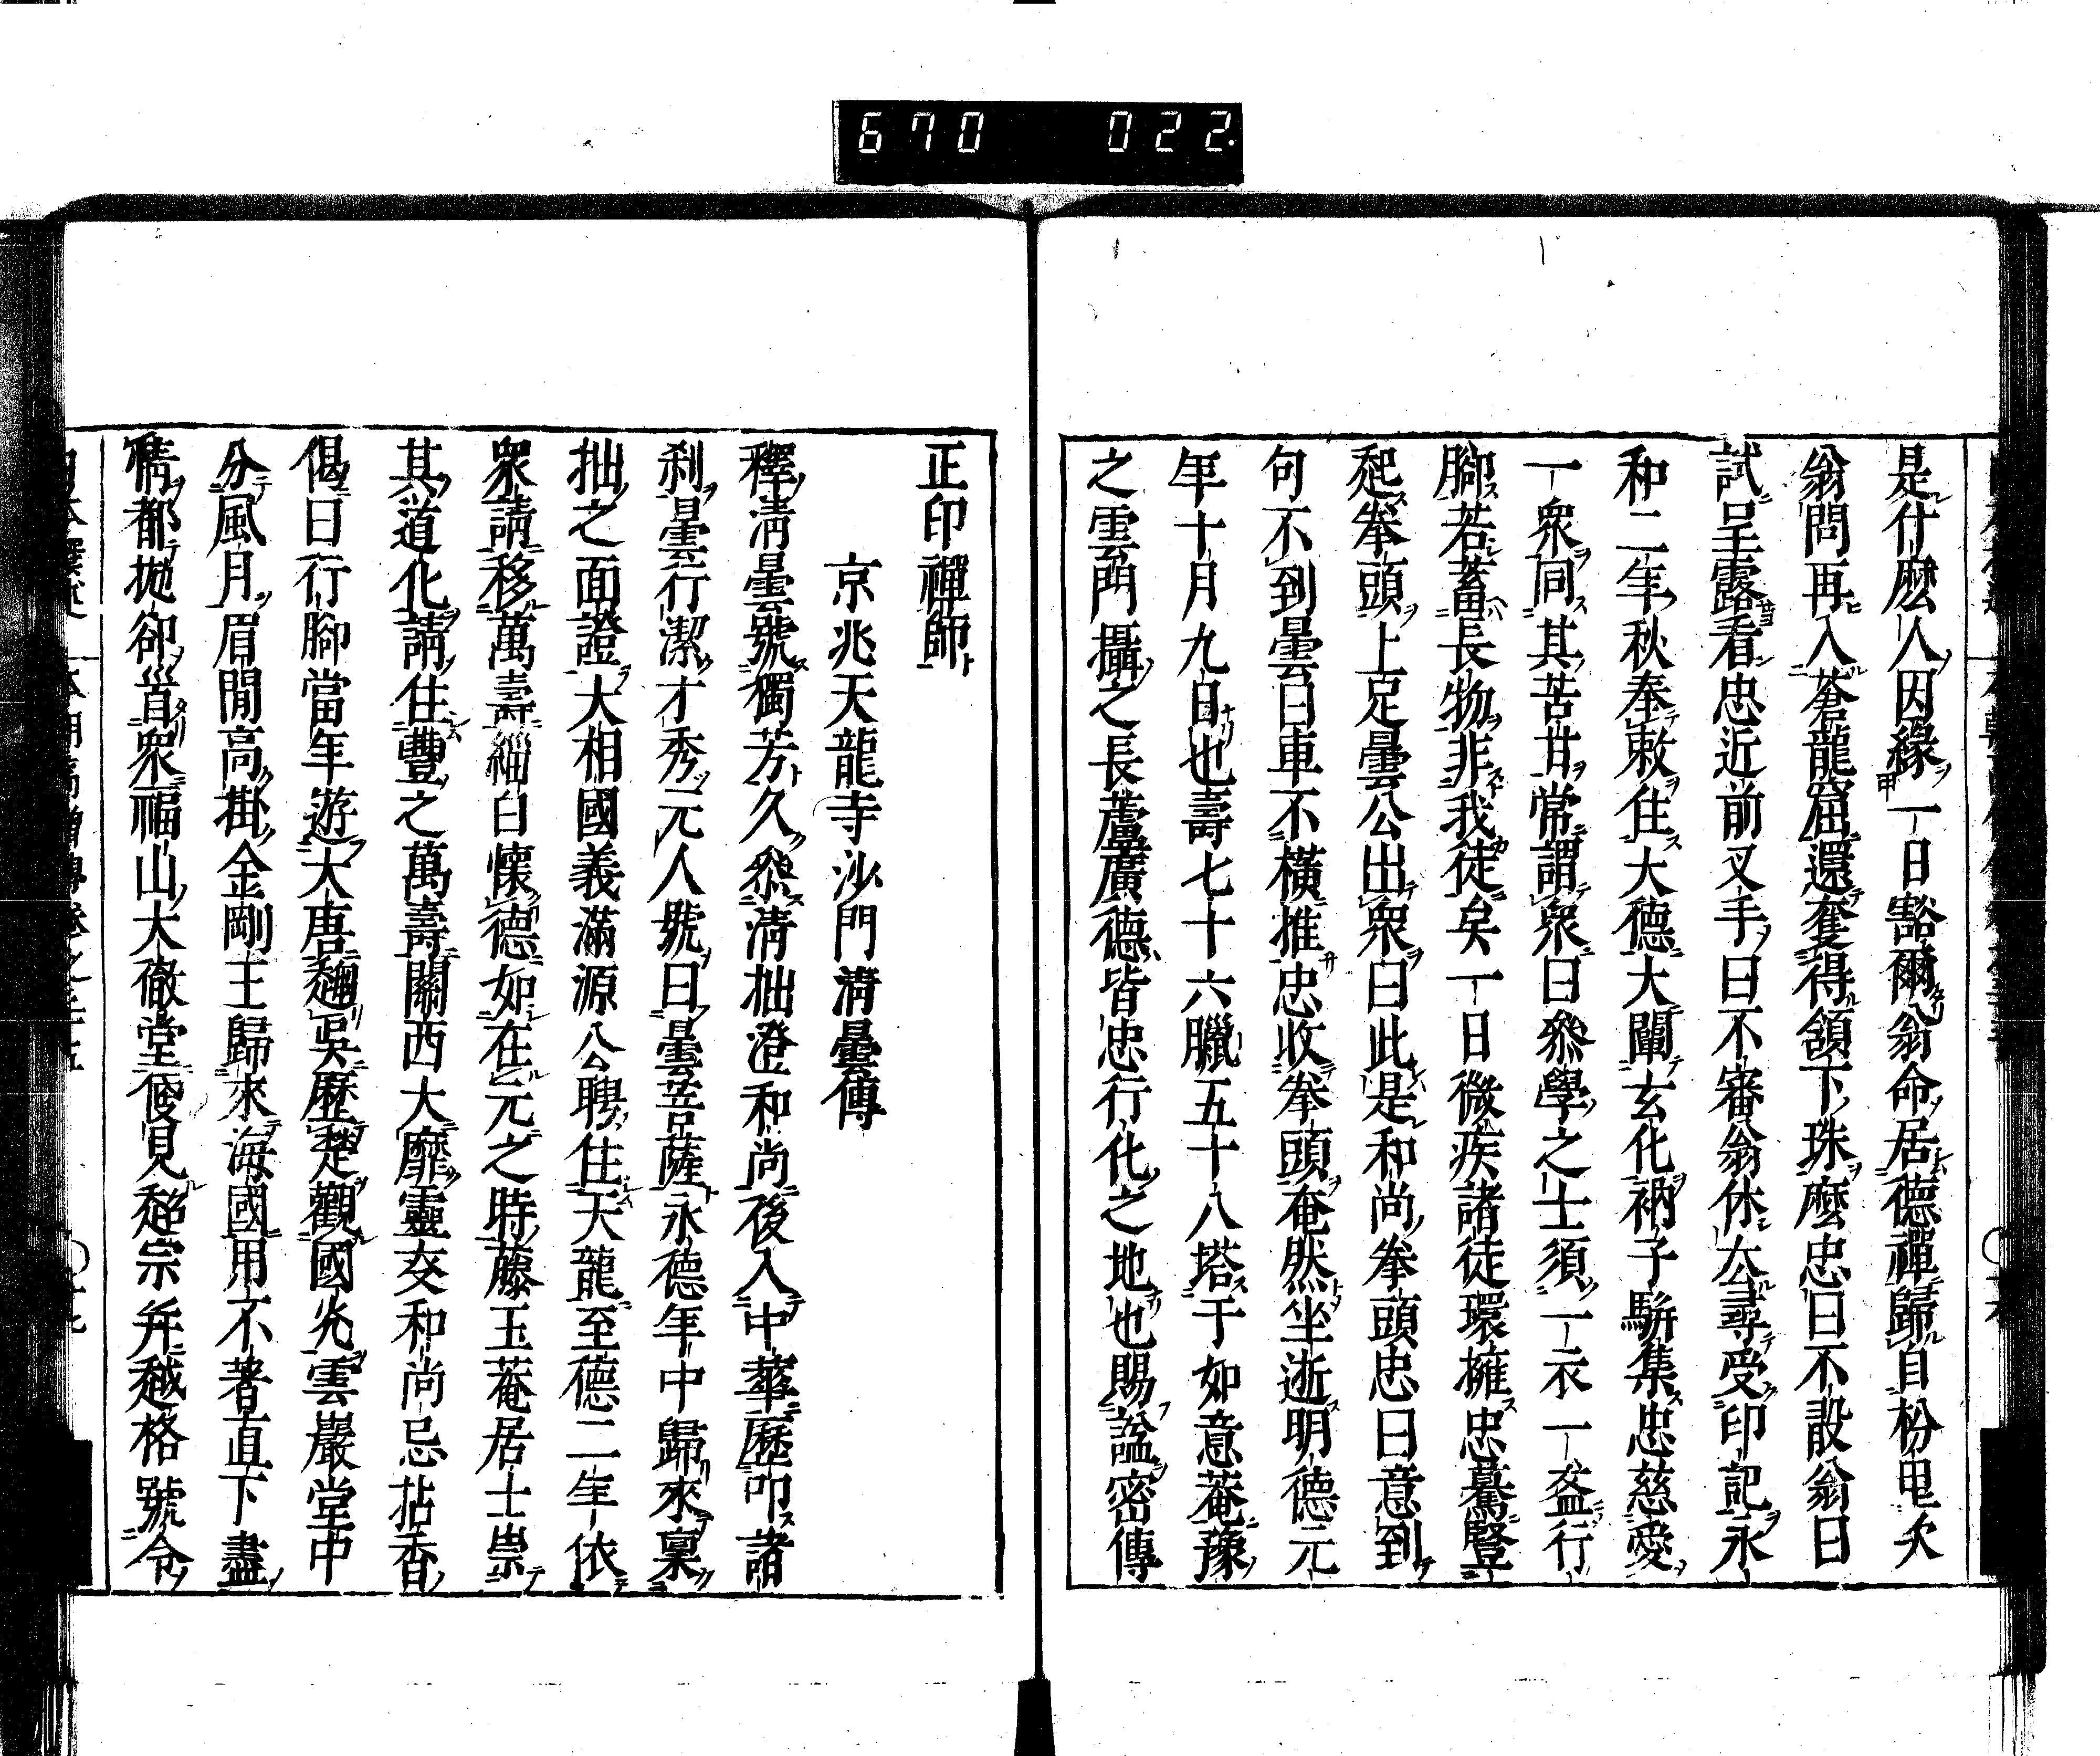 670 022.
是什麽人因緣一日豁爾翁命居德禪歸自枌黽矢
翁問再入蒼龍窟還奪得頷下珠麽忠曰不設翁曰
試呈露看忠近前叉手曰不審翁休厺尋受印記永
和二年秋奉敕住大德大闡玄化衲子駢集忠慈愛
一衆同其苦甘常謂衆曰叅學之士須一衣一盔行
腳若蓄長物非我徒矣一日微疾諸徒環擁忠驀豎
起拳頭上足曇公出衆曰此是和尚拳頭忠曰意到
句不到曇曰車不橫推忠收拳頭奄然坐逝明德元
年十月九日也壽七十六臘五十八塔于如意菴豫
之雲門攝之長蘆廣德皆忠行化之地也賜諡密傳
正印禪師
京兆天龍寺沙門清曇傳
釋清曇號獨芳久叅清拙澄和尚後入中華歷叩諸
刹曇行潔才秀元人號曰曇菩薩永德年中歸來稟
拙之面證大相國義滿源公聘住天龍至德二年依
衆請移萬壽緇白懷德如在元之時藤玉菴居士崇
其道化請住豐之萬壽關西大靡靈叜和尚忌拈香
偈曰行腳當年遊大唐趣吳歷楚觀國光雲巖堂中
分風月眉閒高掛金剛王歸來海國用不著直下盡
情都拋卻首衆福山大徹堂便見超宗并越格號令